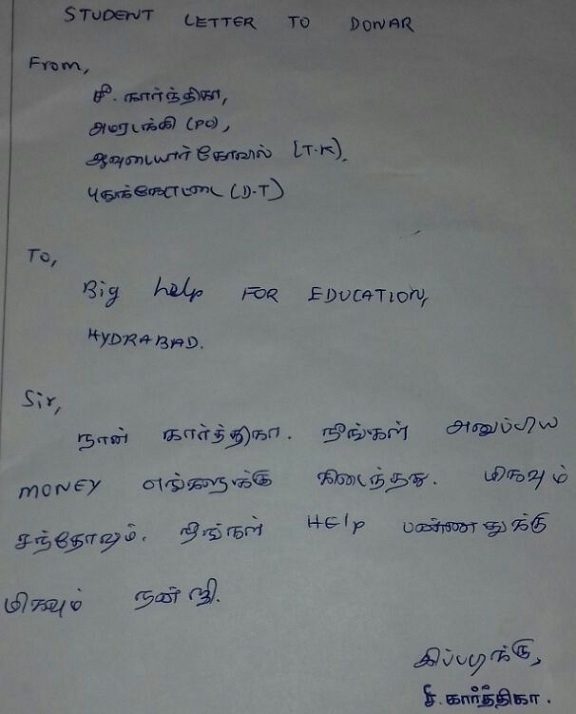 STUDENT LETTER TO DONAR
From,
சீ. கார்த்திகா,
அமரடக்கி (PO),
ஆவுடையார் கோவில் (T.K).
புதுக்கோட்டை (D.T)
To,
Big help FOR EDUCATION,
HYDRABAD.
Sir,
நான் கார்த்திகா. நீங்கள் அனுப்பிய
MONEY எங்களுக்கு கிடைத்தது. மிகவும்
சந்தோஷம். நீங்கள் HElp பண்ணதுக்கு
மிகவும் நன்றி.
இப்படிக்கு,
சீ. கார்த்திகா.